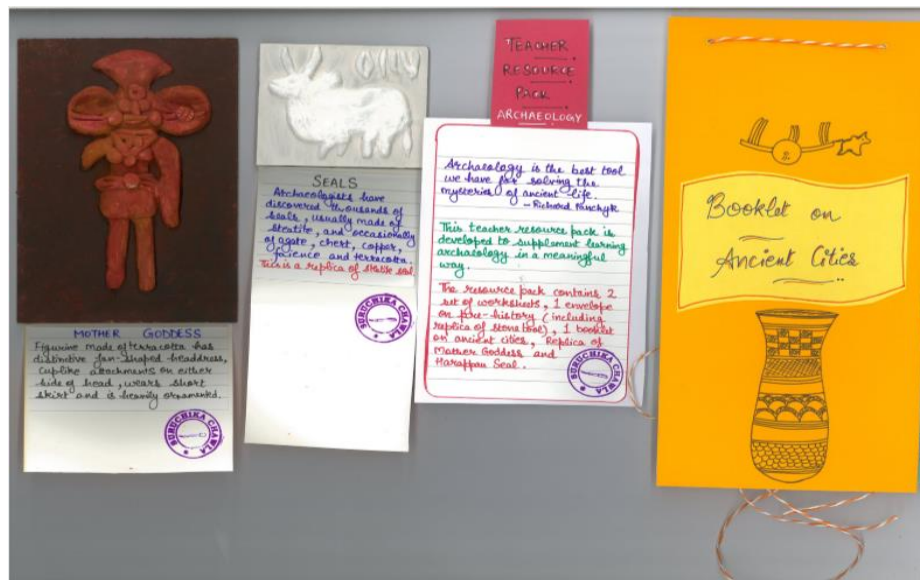 MOTHER GODDESS
Figurine made of terracotta has
distinctive fan-shaped headdress,
cuplike attachments on either
side of head, wears short
skirt and is heavily ornamented.
SURUCHIKA CHAWLA
SEALS
Archaeologists have
discovered thousands of
seals, usually made of
steatite, and occasionally
of agate, chert, copper,
faience and terracotta.
This is a replica of seal.
SURUCHIKA CHAWLA
TEACHER
RESOURCE
PACK
ARCHAEOLOGY
Archaeology is the best tool
we have for solving the
mysteries of ancient life.
- Richard
This teacher resource pack is
developed to supplement learning
archaeology in a meaningful
way.
The resource pack contains 2
set of worksheets, 1 envelope
on pre-history (including
replica of stone tool), 1 booklet
on ancient cities, Replica of
Mother Goddess and
Harappan Seal.
SURUCHIKA CHAWLA
Booklet on
Ancient Cities